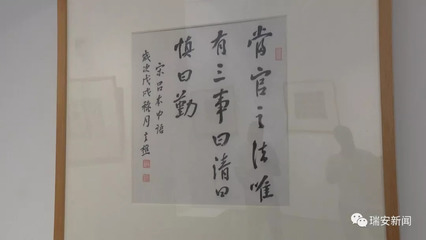 當官之法唯
有三事曰清曰
慎曰勤
宋吕本中語
歲次戊戌穐月
瑞安新闻